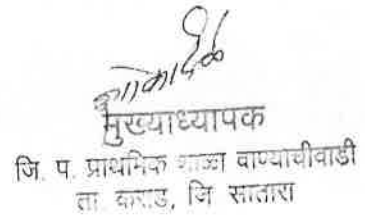 मुख्याध्यापक
जि. प. प्राथमिक शाळा वाण्याचीवाडी
ता. कराड, जि सातारा